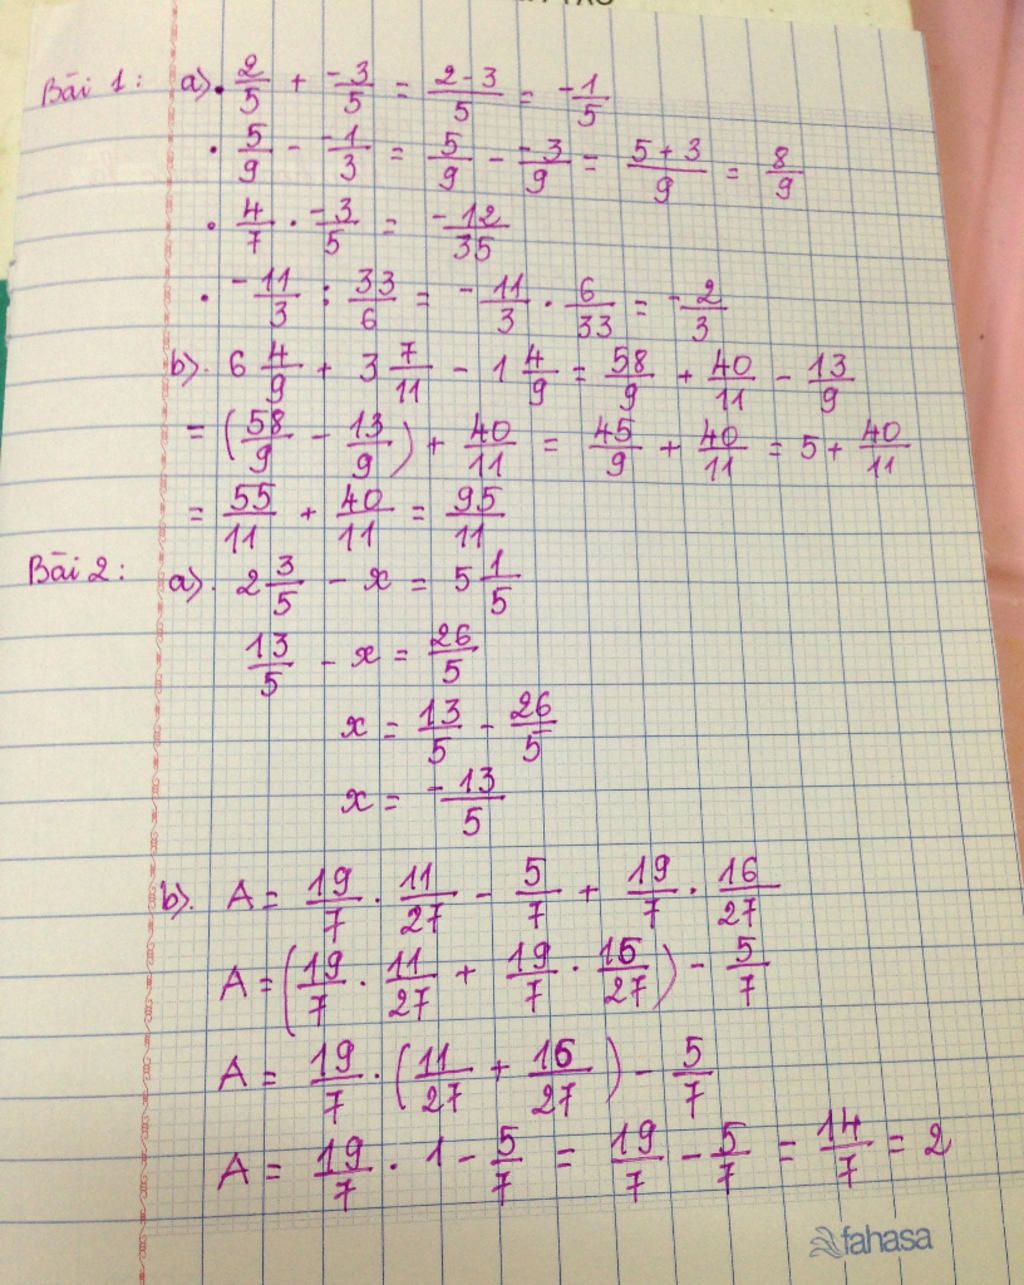 Bài 1: a). 2/5 + -3/5 = 2-3/5 = -1/5
. 5/9 - -1/3 = 5/9 - -3/9 = 5+3/9 = 8/9
. 4/7 . -3/5 = -12/35
. -11/3 : 33/6 = -11/3 . 6/33 = -2/3
b). 6 4/9 + 3 7/11 - 1 4/9 = 58/9 + 40/11 - 13/9
= (58/9 - 13/9) + 40/11 = 45/9 + 40/11 = 5 + 40/11
= 55/11 + 40/11 = 95/11
Bài 2: a). 2 3/5 - x = 5 1/5
13/5 - x = 26/5
x = 13/5 - 26/5
x = -13/5
b). A = 19/7 . 11/27 - 5/7 + 19/7 . 16/27
A = (19/7 . 11/27 + 19/7 . 16/27) - 5/7
A = 19/7 . (11/27 + 16/27) - 5/7
A = 19/7 . 1 - 5/7 = 19/7 - 5/7 = 14/7 = 2
fahasa